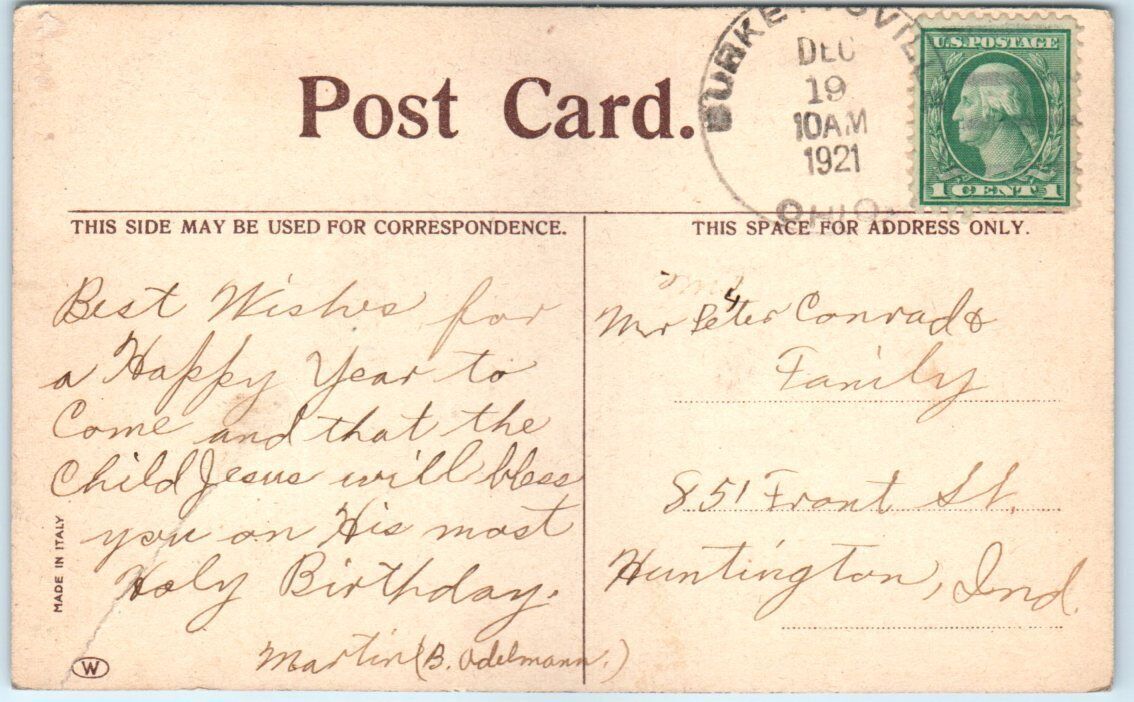 Post Card.
BURKETTSVILLE
DEC
19
10AM
1921
OHIO.
U.S. POSTAGE
1 CENT 1
THIS SIDE MAY BE USED FOR CORRESPONDENCE.
THIS SPACE FOR ADDRESS ONLY.
Best Wishes for
a Happy Year to
Come and that the
Child Jesus will bless
you on His most
Holy Birthday.
Martin (B. Odelmann.)
Mr Peter Conrad &
Family
851 Front St.
Huntington, Ind.
MADE IN ITALY
W